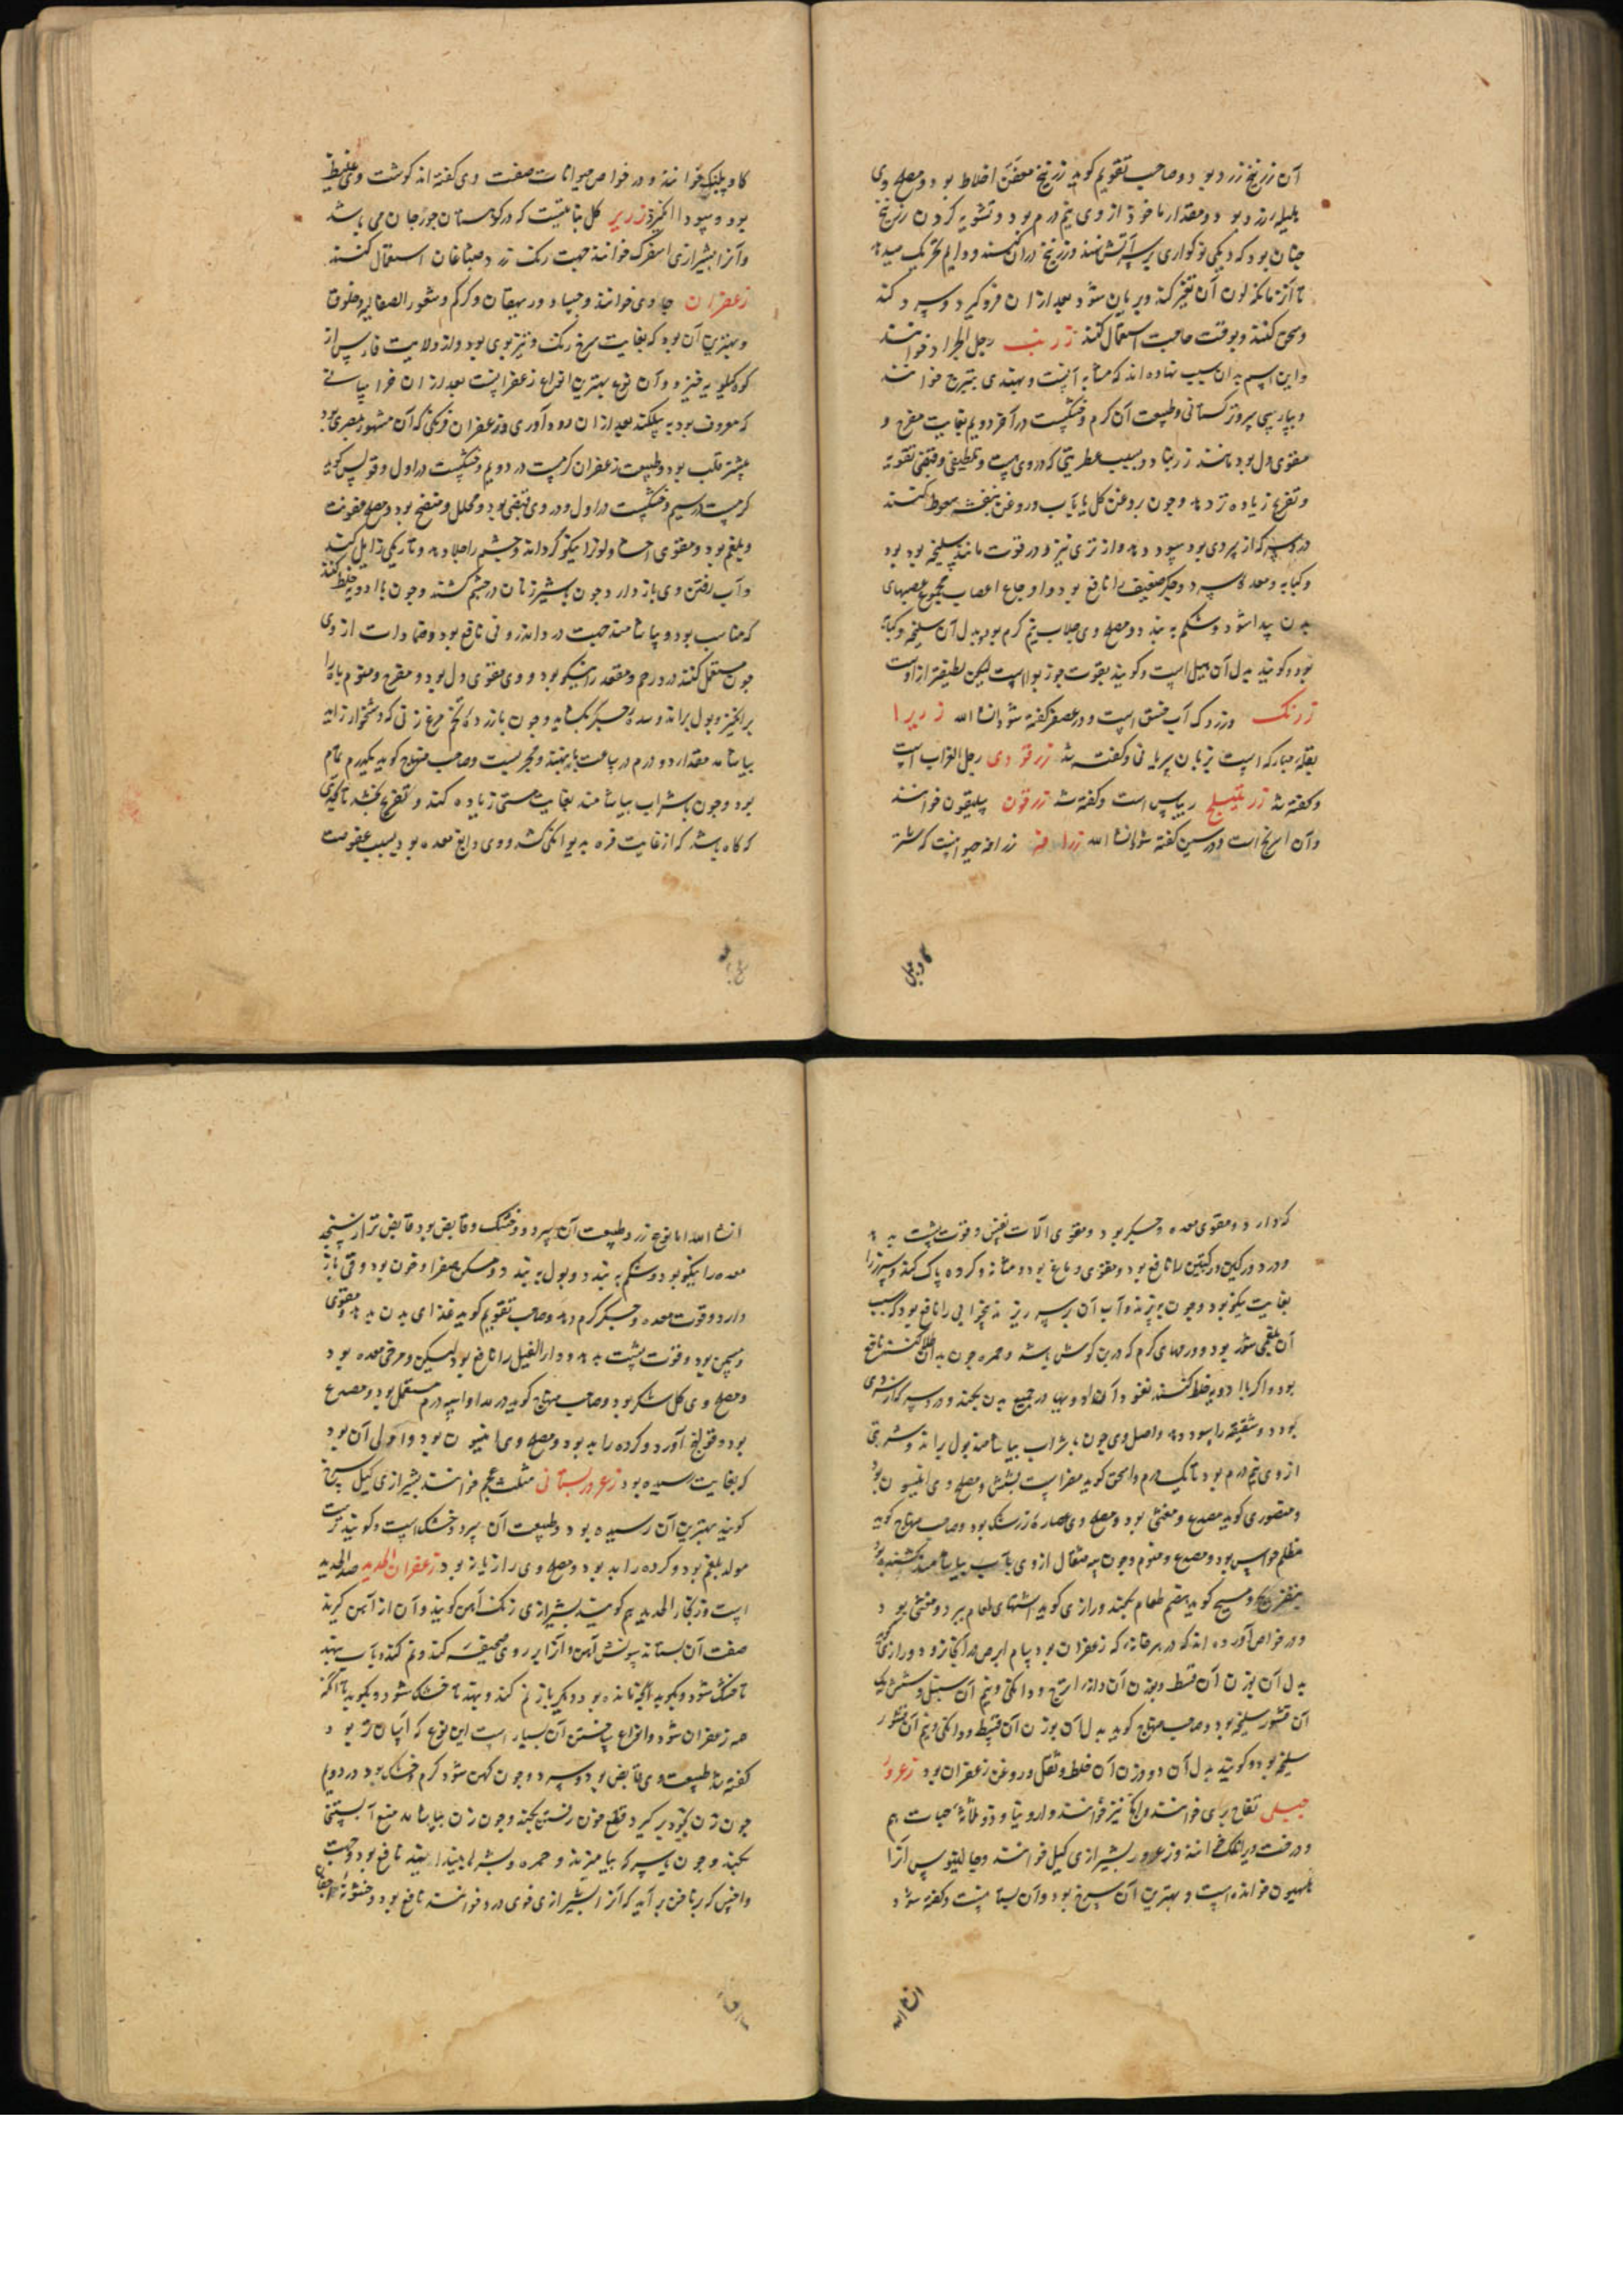 آن زرنیخ زرد بود و صاحب تقویم کوید زرنیخ معفن اخلاط بود و مصلح وی
هلیله زرد بود و مقدار ماخوذ از وی نیم درم بود و تشویه کردن زرنیخ
چنان بود که دیکی نو کواری بر سر آتش نهند و زرنیخ در آن کنند و دایم تحریک میدهد
تا آن زمان که لون آن تغیر کند و بریان شود بعد از آن فرو کیرد و سرد کند
و سحق کنند و بوقت حاجت استعمال کنند زرنب رجل الجراد خوانند
و این اسم بدان سبب نهاده اند که مشابه آنست و بهندی خوانند
و بپارسی سرو ترکستانی و طبیعت آن کرم و خشکست در آخر دویم بغایت مفرح و
مقوی دل بود مانند زرنباد و بسبب عطریتی که در وی هست و تلطیفی و قبضی تقویه
و تفریح زیاده تر دهد و چون بروغن کل یا بآب و روغن بنفشه سعوط کنند
درد سر که از سردی بود سود دهد و از تری نیز و در قوت مانند سلیخه بود
و کبابه و معده سرد و جکر ضعیف را نافع بود و اوجاع اعصاب مجموع عصبهای
بدن پیدا شود و شکم به بندد و مصلح وی جلاب نیم کرم بود و بدل آن سلیخه و کبابه
بود و کویند بدل آن هیل است و کویند بقوت جوز بوا است لیکن لطیفتر از اوست
زرنک وزردک آب خسق است و در عصفر کفته شود انشا الله زریرا
بقله مبارکه است بزبان سریانی و کفته شد زرقودی رجل الغراب است
و کفته شد ریباس است و کفته شد زرقون سلیقون خوانند
و آن اسرنج است و در سین کفته شود انشا الله زرافه زرافه حیوانیست که شتر
کاو پلنک خوانند و در خواص حیوانات صفت وی کفته اند کوشت وی غلیظ
بود و سودا انکیزد زریر کل نباتیست که در کوهستان جورجان می باشد
و آنرا بشیرازی اسفرک خوانند جهت رنک زرد صباغان استعمال کنند
زعفران جاوی خوانند و جساد و ریهقان و کرکم و شعور الصقالبه و خلوق
و بهترین آن بود که بغایت سرخ رنک و تیز بوی بود و از ولایت فارس از
کوه کیلویه خیزد و آن نوع بهترین انواع زعفرانست بعد از آن خراسانی
که معروف بود به بعد از آن رودآوری و زعفران فرنکی که آن مشهور بمصری بود
بیشتر قلب بود و طبیعت زعفران کرمست در دویم و خشکست در اول و قولس کوید
کرمست در سیم و خشکست در اول و در وی قبضی بود و محلل و منضج بود و مصلح عفونت
و بلغم بود و مقوی احشا و لون را نیکو کرداند و چشم را جلا دهد و تاریکی زایل کند
و آب رفتن وی باز دارد چون بشیر زنان در چشم کشند و چون با ادویه خلط کنند
که مناسب بود و بیاشامند جهت درد اندرونی نافع بود و ضمادات از وی
چون مستعمل کنند درد رحم و مقعد را نیکو بود و وی مقوی دل بود و مفرح و منوم باه را
برانکیزد و بول براند و سده جکر بکشاید و چون با زرده تخم مرغ زنی که دشخوار زاید
بیاشامد مقدار دو درم در ساعت بار بنهد و مجربست و صاحب منهاج کوید یکدرم تمام
بود و چون با شراب بیاشامند بغایت مستی زیاده کند و تفریح بخشد تا بحدی
که کاه باشد که از غایت فرح به دیوانکی کشد و وی دابغ معده بود بسبب عفوصت
کاو جبل
که دارد و مقوی معده و جکر بود و مقوی آلات نفس و قوت پشت بدهد
و درد درکین و رکبتین را نافع بود و مقوی دماغ بود و مثانه و کرده پاک کند و سپرز را
بغایت نیکو بود و چون بپزند و آب آن بر سر ریزند بیخوابی را نافع بود که سبب
آن بلغمی شور بود و ورمهای کرم که در بن کوش باشد و حمره چون بدان طلا کنند نافع
بود و اکر با ادویه خلط کنند نفوذ آن ادویها در جمیع بدن بکند و درد سر که از سردی
بود و شقیقه را سود دهد و اصل وی چون با شراب بیاشامند بول براند و شربتی
از وی نیم درم بود تا یکدرم و اسحق کوید مضرست بشش و مصلح وی انیسون بود
و منصوری کوید مصدع و مغثی بود و مصلح وی عصاره زرشک بود و صاحب منهاج کوید
مظلم حواس بود و مصدع و منوم و چون سه مثقال از وی بآب بیاشامند کشنده بود
بتفریح و مسیح کوید هضم طعام بکند و رازی کوید اشتهای طعام ببرد و مغثی بود
و در خواص آورده اند که در هر خانه که زعفران بود سام ابرص در آنجا نرود و رازی کوید
بدل آن بوزن آن قسط و بوزن آن دانه اترج و دانکی و نیم آن سنبل و شش یک
آن قشور سلیخه بود و صاحب منهاج کوید بدل آن بوزن آن قسط و دانکی و نیم آن قشور
سلیخه بود و کویند بدل آن دو وزن آن خلط و ثقل روغن زعفران بود زعرور
جبلی تفاح بری خوانند و نیز خوانند و اروینا و ذو ثلاثة حبات هم
و درخت ویرا خوانند و زعرور بشیرازی کیل خوانند و جالینوس آنرا
خوانده است و بهترین آن سرخ بود و آن بستانیست و کفته شود
انشا الله اما نوع زرد طبیعت آن سرد و خشک و قابض بود قابض تر از سنجد
معده را نیکو بود و شکم به بندد و بول به بندد و مسکن صفرا و خون بود و قی باز
دارد و قوت معده و جکر کرم دهد و صاحب تقویم کوید غذای بدن بدهد و مقوی
و مسمن بود و قوت پشت بدهد و دار الفیل را نافع بود لیکن مرخی معده بود
و مصلح وی کل شکر بود و صاحب منهاج کوید در مداوا سه درم مستعمل بود و مصدع
بود و قولنج آورد و کرده را بد بود و مصلح وی انیسون بود و اولی آن بود
که بغایت رسیده بود زعرور بستانی مثلث عجم خوانند بشیرازی کیل سرخ
کویند بهترین آن رسیده بود و طبیعت آن سرد و خشک است و کویند ترست
مولد بلغم بود و کرده را بد بود و مصلح وی رازیانه بود زعفران الحدید صدا الحدید
است و زنجار الحدید هم کویند بشیرازی زنک آهن کویند و آن از آهن کیرند
صفت آن بستانند سونش آهن و آنرا بر روی صحیفه کند و نم کند و بآب بنهد
تا خشک شود و بکوبد آنچه مانده بود دیکر باز نم کند و بنهد تا خشک شود و بکوبد تا آنکه
همه زعفران شود و انواع ساختن آن بسیار است این نوع که آسان تر بود
کفته شد طبیعت وی قابض بود و سرد و چون کهن شود کرم و خشک بود در دویم
چون زن بخود برکیرد قطع خون رفتن بکند و چون زن بیاشامد منع آبستنی
بکند و چون با سرکه بیامیزند و حمره و بشرها بدان بنهند نافع بود و جهت
داخس که بر ناخن بر آید که آنرا بشیرازی خوی درد خوانند نافع بود و خشونة اجفان
انشا الله